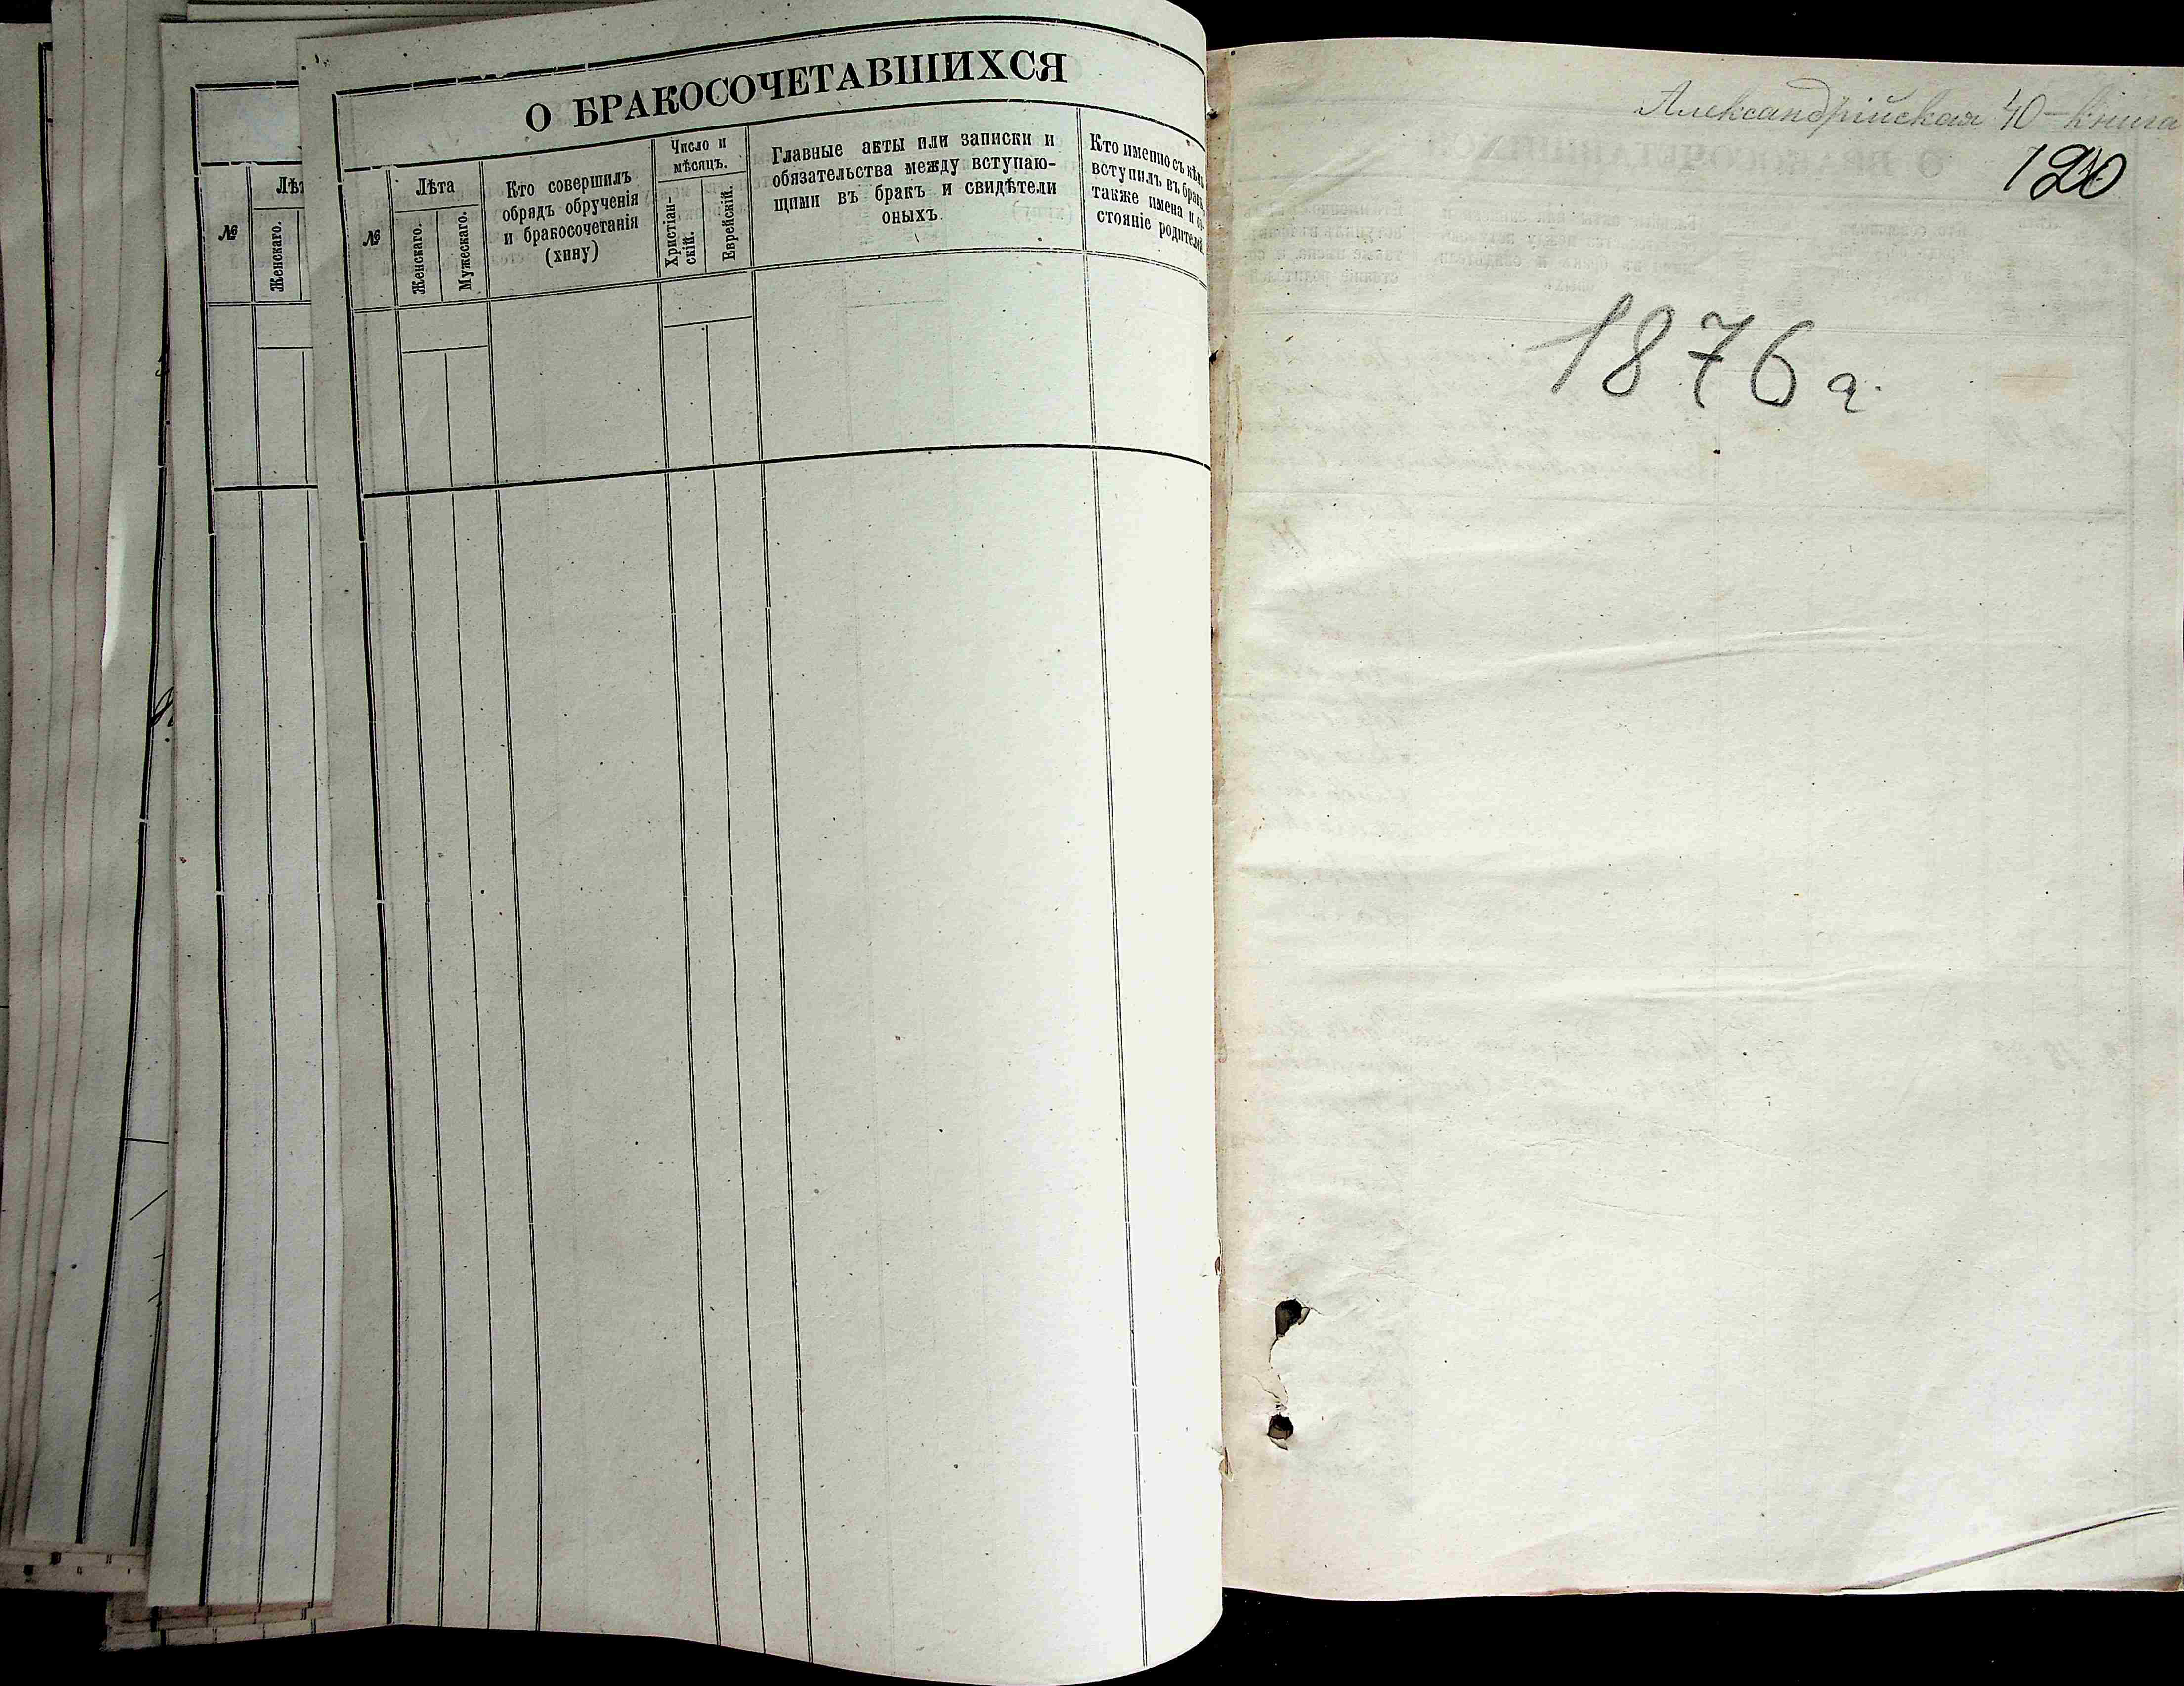 О БРАКОСОЧЕТАВШИХСЯ
№
Лѣта
Женскаго.
Мужескаго.
Кто совершилъ
обрядъ обрученія
и бракосочетанія
(хину)
Число и
мѣсяцъ.
Христіан-
скій.
Еврейскій.
Главные акты или записки и
обязательства между вступаю-
щими въ бракъ и свидѣтели
оныхъ.
Кто именно съ кѣмъ
вступилъ въ бракъ,
также имена и со-
стояніе родителей.
№
Лѣт
Женскаго.
Александрійская 40-книга
120
1876 г.